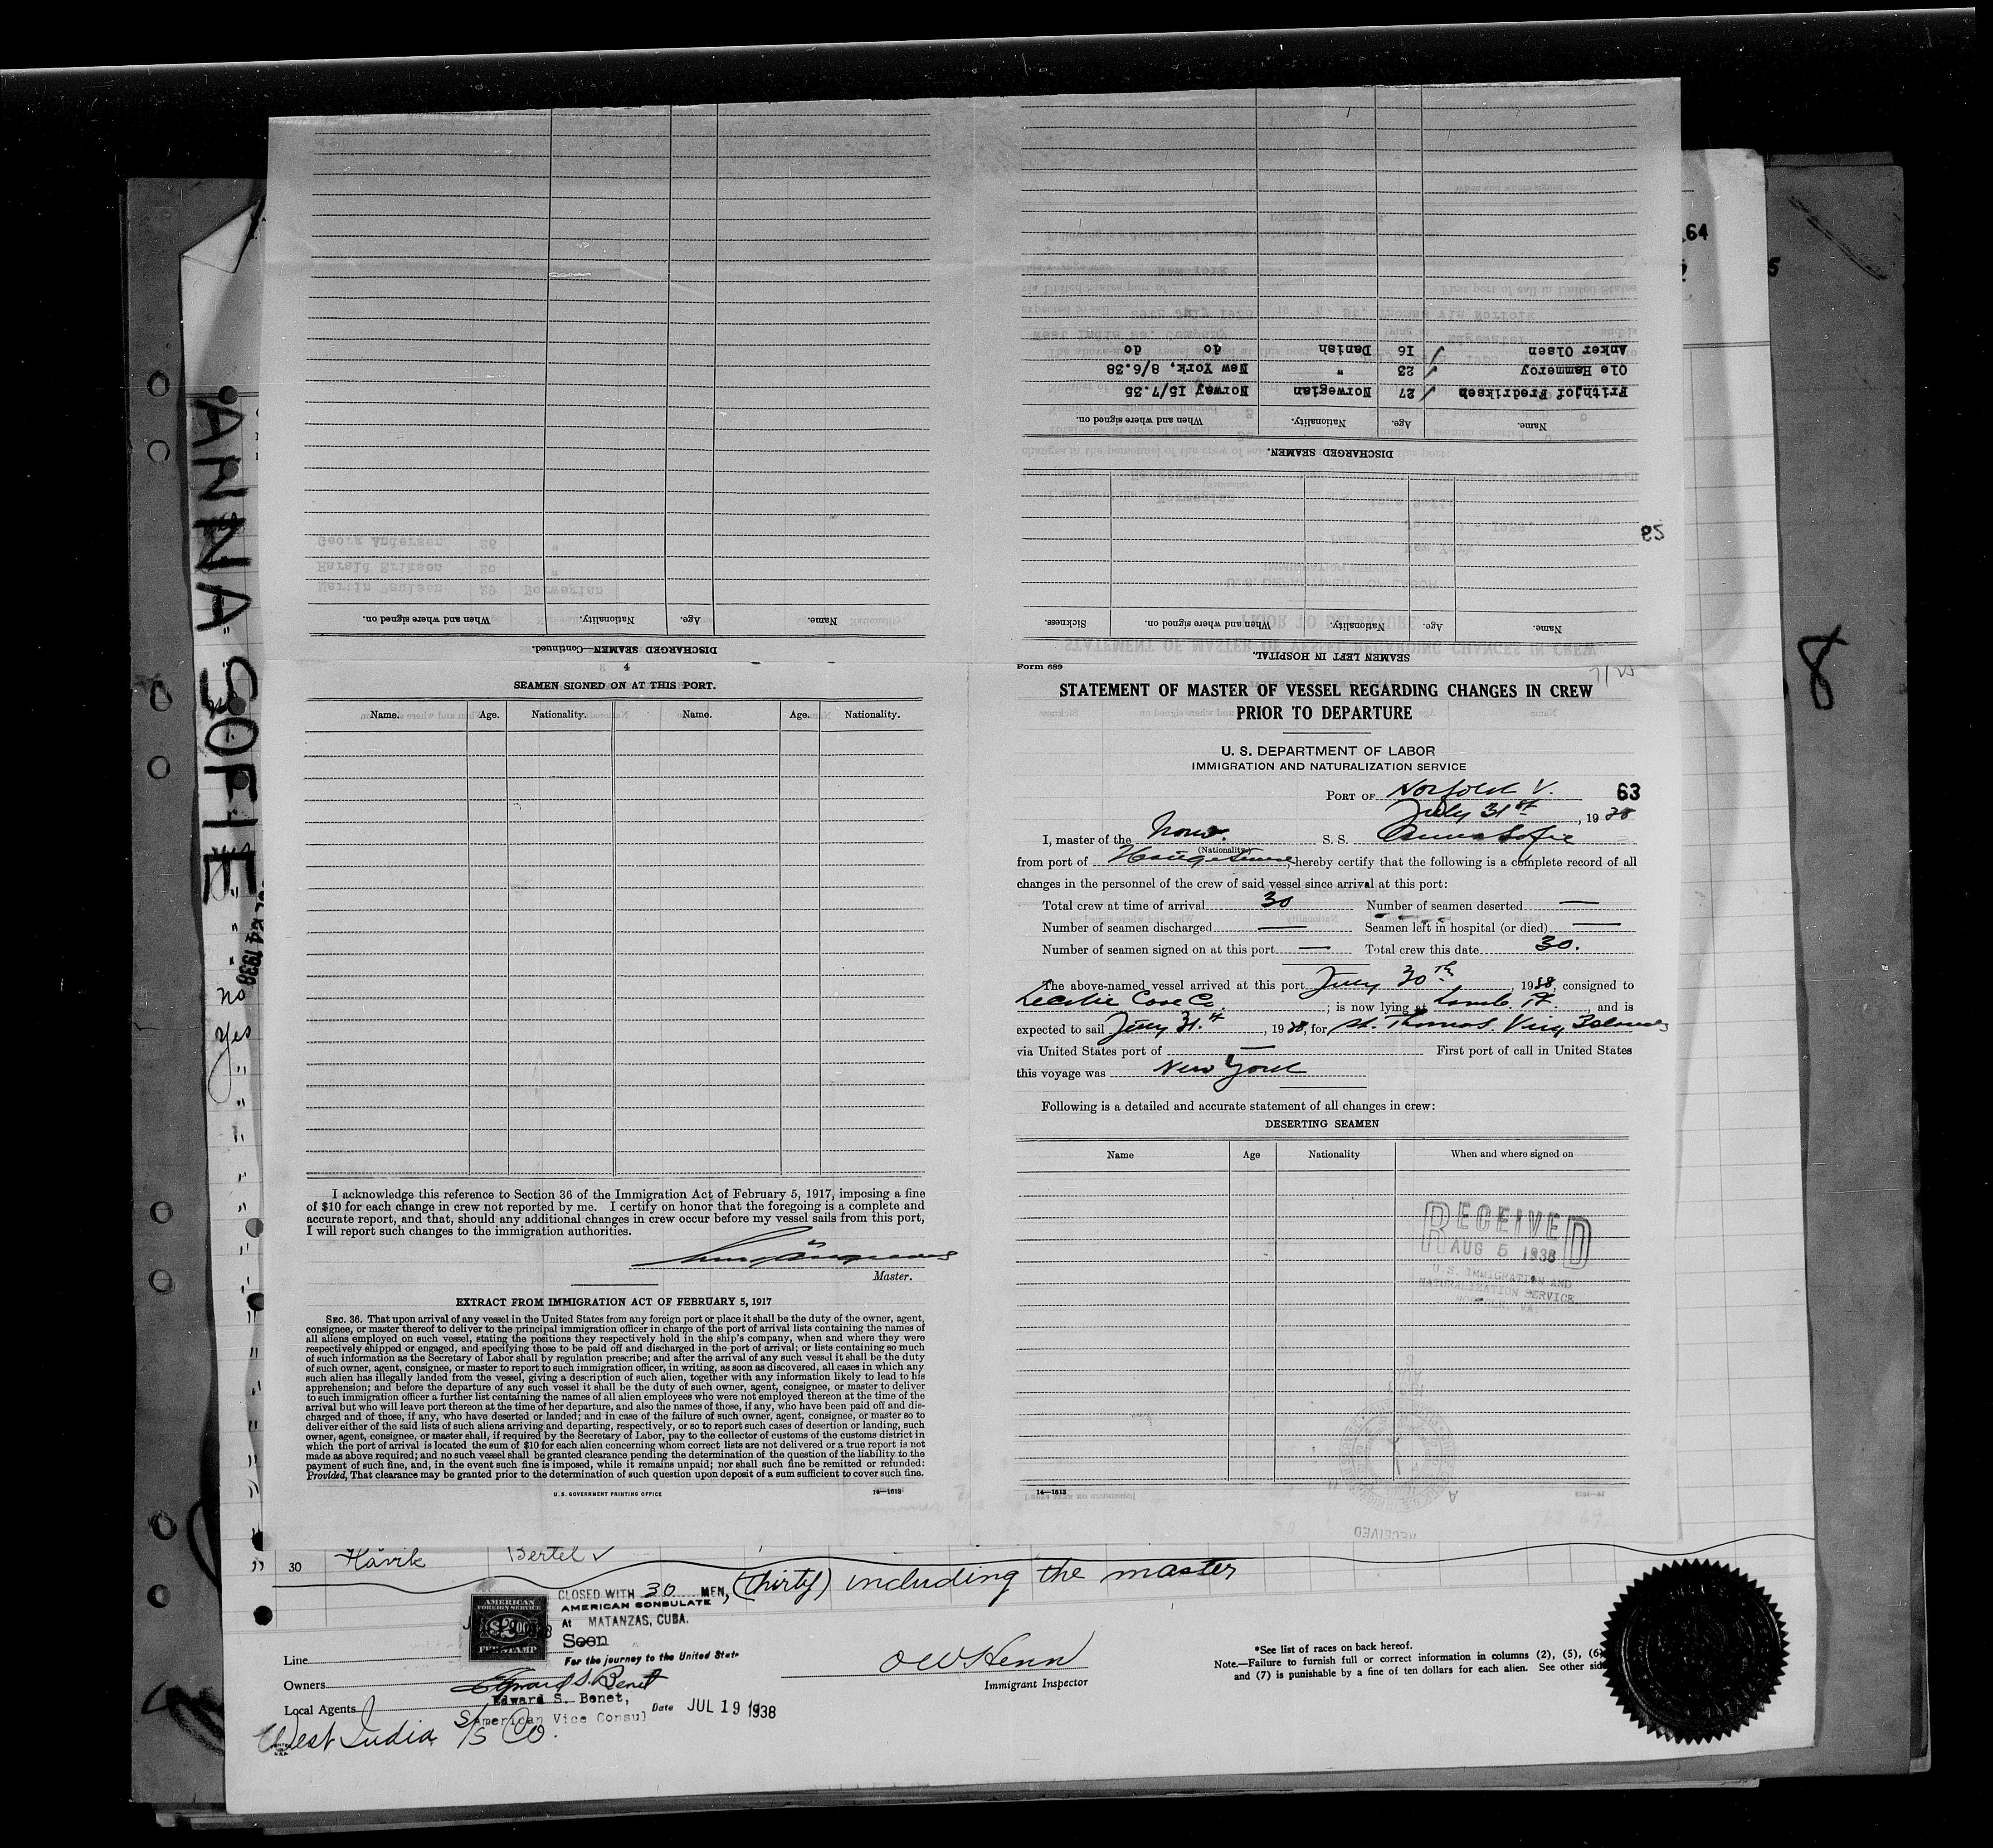 ANNA SOFIE
8
64
5
65
no
yes
DISCHARGED SEAMEN—Continued.
Name. Age. Nationality. When and where signed on.
SEAMEN LEFT IN HOSPITAL.
Name. Age. Nationality. When and where signed on. Sickness.
DISCHARGED SEAMEN.
Name. Age. Nationality. When and where signed on.
Frithjof Fredriksen 27 Norwegian Norway 15/7.35
Ole Hammeroy 23 " New York, 8/6.38
Anker Olsen 16 Danish do do
4
SEAMEN SIGNED ON AT THIS PORT.
Name. Age. Nationality. Name. Age. Nationality.
I acknowledge this reference to Section 36 of the Immigration Act of February 5, 1917, imposing a fine
of $10 for each change in crew not reported by me. I certify on honor that the foregoing is a complete and
accurate report, and that, should any additional changes in crew occur before my vessel sails from this port,
I will report such changes to the immigration authorities.
Master.
EXTRACT FROM IMMIGRATION ACT OF FEBRUARY 5, 1917
SEC. 36. That upon arrival of any vessel in the United States from any foreign port or place it shall be the duty of the owner, agent,
consignee, or master thereof to deliver to the principal immigration officer in charge of the port of arrival lists containing the names of
all aliens employed on such vessel, stating the positions they respectively hold in the ship's company, when and where they were
respectively shipped or engaged, and specifying those to be paid off and discharged in the port of arrival; or lists containing so much
of such information as the Secretary of Labor shall by regulation prescribe; and after the arrival of any such vessel it shall be the duty
of such owner, agent, consignee, or master to report to such immigration officer, in writing, as soon as discovered, all cases in which any
such alien has illegally landed from the vessel, giving a description of such alien, together with any information likely to lead to his
apprehension; and before the departure of any such vessel it shall be the duty of such owner, agent, consignee, or master to deliver
to such immigration officer a further list containing the names of all alien employees who were not employed thereon at the time of the
arrival but who will leave port thereon at the time of her departure, and also the names of those, if any, who have been paid off and dis-
charged and of those, if any, who have deserted or landed; and in case of the failure of such owner, agent, consignee, or master so to
deliver either of the said lists of such aliens arriving and departing, respectively, or so to report such cases of desertion or landing, such
owner, agent, consignee, or master shall, if required by the Secretary of Labor, pay to the collector of customs of the customs district in
which the port of arrival is located the sum of $10 for each alien concerning whom correct lists are not delivered or a true report is not
made as above required; and no such vessel shall be granted clearance pending the determination of the question of the liability to the
payment of such fine, and, in the event such fine is imposed, while it remains unpaid; nor shall such fine be remitted or refunded:
Provided, That clearance may be granted prior to the determination of such question upon deposit of a sum sufficient to cover such fine.
U. S. GOVERNMENT PRINTING OFFICE 14—1613
Form 689
STATEMENT OF MASTER OF VESSEL REGARDING CHANGES IN CREW
PRIOR TO DEPARTURE
U. S. DEPARTMENT OF LABOR
IMMIGRATION AND NATURALIZATION SERVICE
PORT OF Norfolk V. 63
July 31st, 1938
I, master of the Norw. S. S. Anna Sofie
(Nationality)
from port of Haugesund hereby certify that the following is a complete record of all
changes in the personnel of the crew of said vessel since arrival at this port:
Total crew at time of arrival 30 Number of seamen deserted —
Number of seamen discharged — Seamen left in hospital (or died) —
Number of seamen signed on at this port — Total crew this date 30.
The above-named vessel arrived at this port July 30th, 1938, consigned to
Co.; is now lying at Lamb. Pt. and is
expected to sail July 31.st, 1938, for St. Thomas. Virg Islands
via United States port of — First port of call in United States
this voyage was New York
Following is a detailed and accurate statement of all changes in crew:
DESERTING SEAMEN
Name Age Nationality When and where signed on
RECEIVED
AUG 5 1938
U. S. IMMIGRATION AND
NATURALIZATION SERVICE
NORFOLK, VA.
14—1613
30 Håvik Bertel
CLOSED WITH 30 MEN, (thirty) including the master
AMERICAN CONSULATE
At MATANZAS, CUBA.
Seen
For the journey to the United Stat
AMERICAN
FOREIGN SERVICE
FEE STAMP
Line
Owners
Edward S. Benet
Edward S. Benet,
American Vice Consul Date JUL 19 1938
Local Agents
West India S/S Co.
O W Henn
Immigrant Inspector
*See list of races on back hereof.
Note.—Failure to furnish full or correct information in columns (2), (5), (6)
and (7) is punishable by a fine of ten dollars for each alien. See other sid